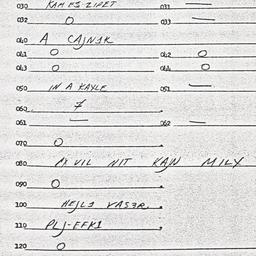 030 KAM ES ZIPET 031 —
032 O 033 —
040 A CAJNIK
041 O 042 O
043 O 044 O
050 IN A KAYLE 051 —
060 7
061 — 062 —
070 O
080 VIL NIT KAJN MILX
090 O
100 HEJLE VASER
110 PLJ-FFKI
120 O